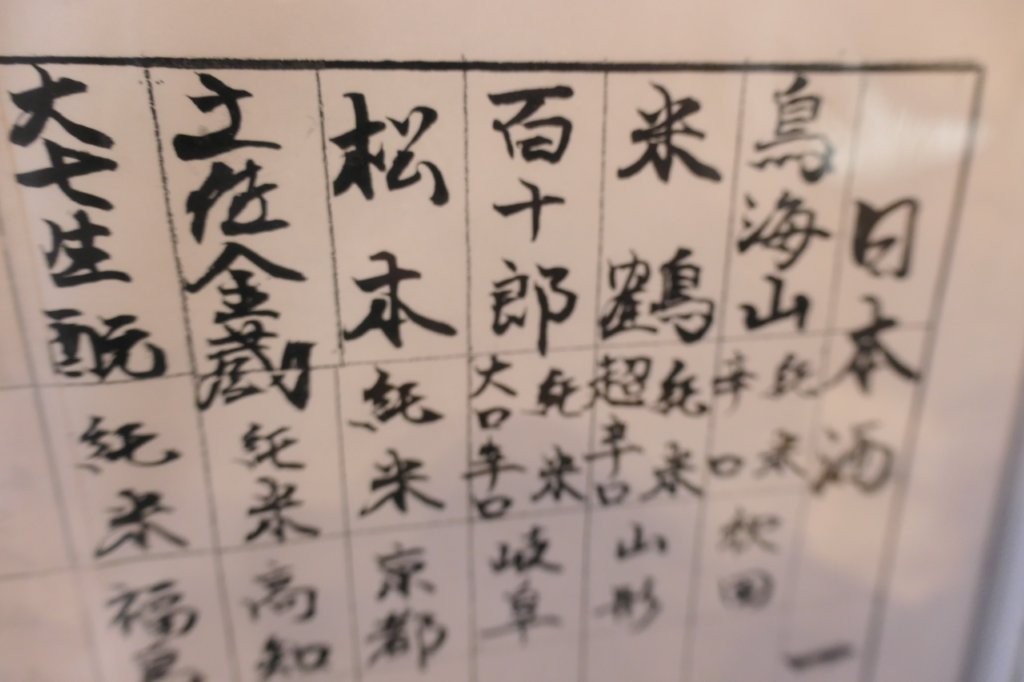 日本酒 一
鳥海山
純米
辛口
秋田
米鶴
純米
超辛口
山形
百十郎
純米
大口辛口
岐阜
松本
純米
京都
土佐金蔵
純米
高知
大七生酛
純米
福島